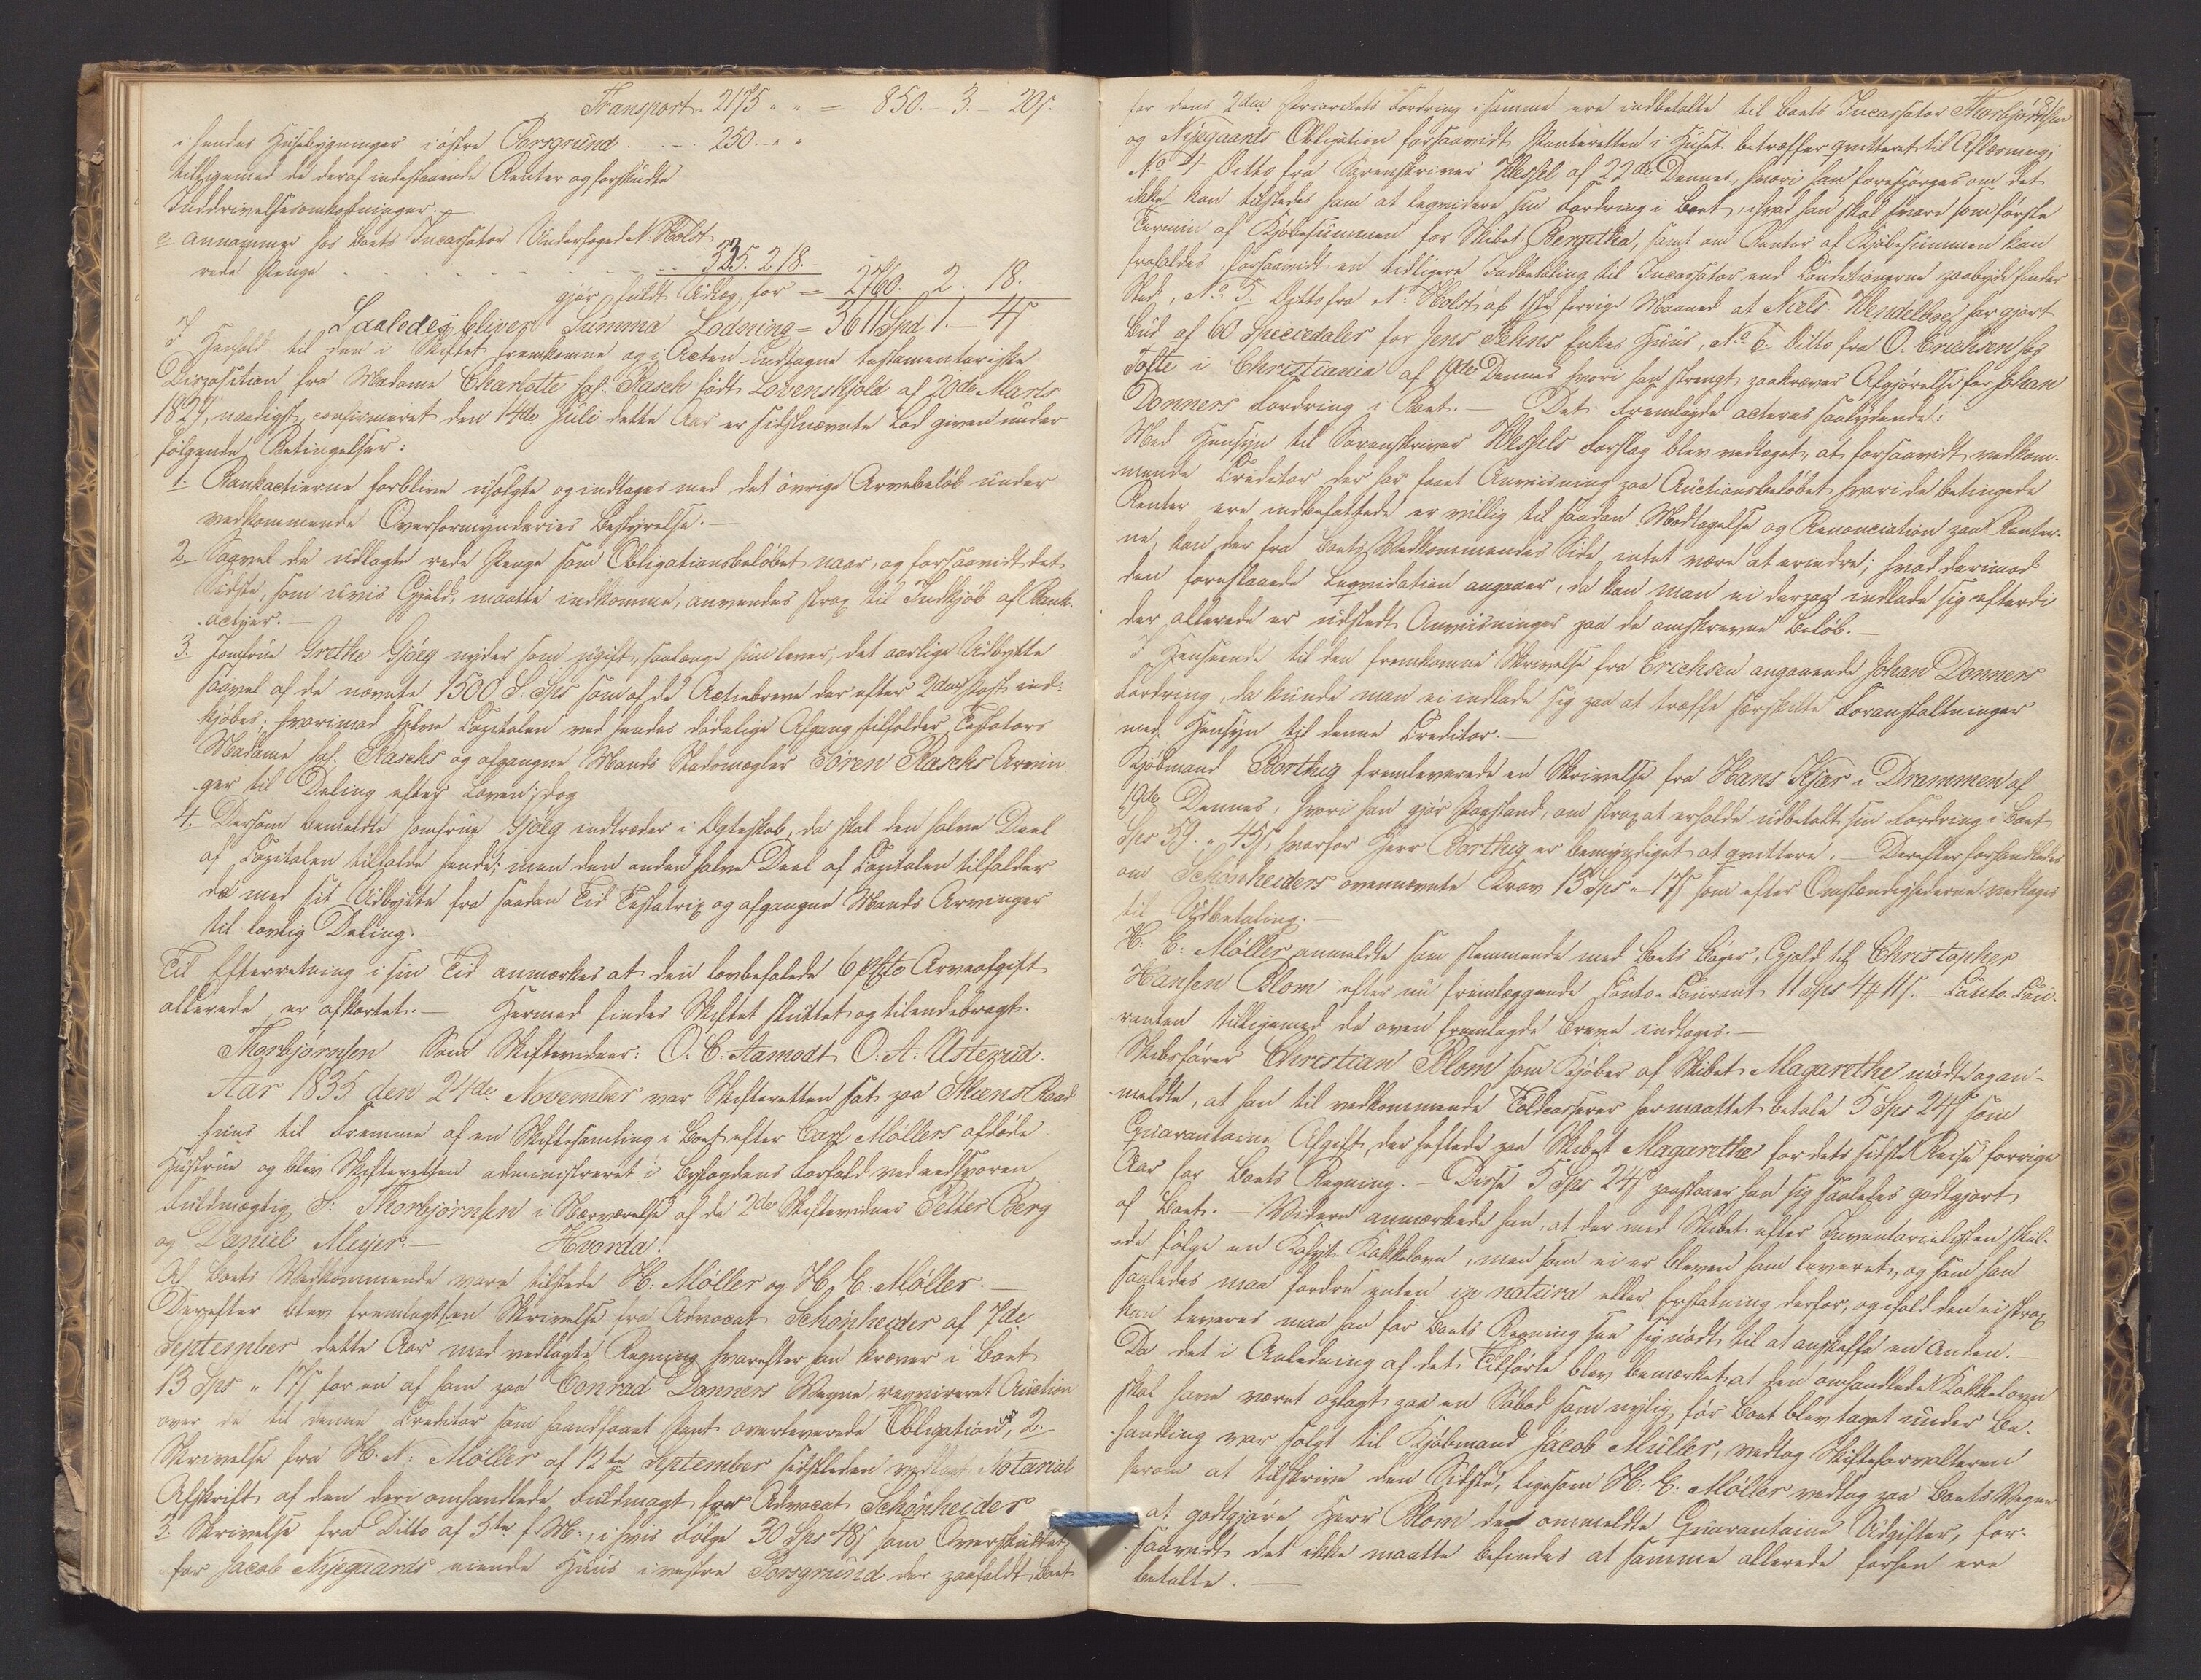 Transport 2175 " " = 850.- 3.- 20ſ.
i hendes Huusbygninger i östre Porsgrund . . . . 250. " "
tilligemed de deraf indestaaende Renter og forskudte
Inddrivelsesomkostninger.
c. annammer hos Boets Incassator Underfoged N: Holst
rede Penge . . . . . . . . 335. 2. 18.
gjör fuldt Udlæg for = 2760. 2. 18.
Saaledes bliver Summa Lodning = 3611 Spd 1.- 4ſ
I Henhold til den i Skiftet fremkomne og i Acten indtagne testamentariske
Disposition fra Madame Charlotte sal. Rasch födt Lövenskjold af 20de Marts
1827, naadigst confirmeret den 14de Juli dette Aar er sidstnævnte Lod given under
fölgende Betingelser:
1. Bankactierne forblive usolgte og indtages med det övrige Arvebelöb under
vedkommende Overformynderies Bestyrelse.-
2. Saavel de udlagte rede Penge som Obligationsbelöbet naar, og forsaavidt det
Sidste, som uvis Gjeld, maatte indkomme, anvendes strax til Indkjöb af Bank-
actier.-
3. Jomfrue Grethe Gjöeg nyder som ugift, saalænge hun lever, det aarlige Udbytte
saavel af de nævnte 1500 S. Sps som af de Actiebreve der efter 2den Post ind-
kjöbes; hvorimod selve Capitalen ved hendes dödelige Afgang tilfalder Testators
Madame sal. Raschs og afgangne Mands Stadsmægler Sören Raschs Arvin-
ger til Deling efter Loven; dog
4. Dersom bemeldte Jomfrue Gjöeg indtræder i Ægteskab, da skal den halve Deel
af Capitalen tilfalde hende; men den anden halve Deel af Capitalen tilfalder
da med sit Udbytte fra saadan Tid Testatrix og afgangne Mands Arvinger
til lovlig Deling.-
Til Efterretning i sin Tid anmærkes at den lovbefalede 6 pCto Arveafgift
allerede er afkortet.- Hermed findes Skiftet sluttet og tilendebragt.
Thorbjörnsen Som Skiftevidner: O. C. Aamodt O. A. Usterud.
Aar 1835 den 24de November var Skifteretten sat paa Skiens Raad-
huus til Fremme af en Skiftesamling i Boet efter Carl Möllers afdöde
Hustrue og blev Skifteretten administreret i Byfogdens Forfald ved eedsvoren
Fuldmægtig S: Thorbjörnsen i Nærværelse af de 2de Skiftevidner Petter Berg
og Daniel Meyer.- Hvorda!
Af Boets Vedkommende vare tilstede H: Möller og H. E: Möller.-
Derefter blev fremlagt 1. en Skrivelse fra Advocat Schönheyder af 7de
September dette Aar med vedlagte Regning hvorefter han kræver i Boet
13 Sps " 17ſ for en af ham paa Conrad Donners Vegne reqvireret Auction
over de til denne Creditor som haandfaaet Pant overleverede Obligationer, 2.
Skrivelse fra H. N: Möller af 12te September sidstleden vedlagt Notarial
Afskrift af den deri omhandlede Fuldmagt for Advocat Schönheider
3. Skrivelse fra Ditto af 5te f. M., i hvis Fölge 30 Sps 48ſ som Overskuddet
for Jacob Nyegaards eiende Huus i vestre Porsgrund der paafaldt Boet
for dens 2den Prioritets Fordring i samme ere indbetalte til Boets Incassator Thorbjörnsen
og Nyegaards Obligation forsaavidt Panteretten i Huset betræffer qvitteret til Aflæsning;
No 4 Ditto fra Sorenskriver Wessel af 22de Dennes, hvori han forespörges om det
ikke kan tilstedes ham at leqvidere sin Fordring i Boet, i hvad han skal svare som förste
Termin af Kjöbesummen for Skibet Bergitha, samt om Renter af Kjöbesummen kan
frafaldes, forsaavidt en tidligere Indbetaling til Incassator end Conditionerne paabyde finder
Sted, No 5. Ditto fra N: Holst af 1ste forrige Maaned at Niels Wendelboe har gjort
Bud af 60 Speciedaler for Jens Jehns Enkes Huus, No 6 Ditto fra O. Erichsen hos
Tofte i Christiania af Dennes hvori han strengt paakræver Afgjörelse for Johan
Donners Fordring i Boet.- Det Fremlagde acteres saalydende:
Med Hensyn til Sorenskriver Wessels Forslag blev vedtaget, at forsaavidt vedkom-
mende Creditor der har faaet Anviisning paa Auctionsbelöbet hvori de betingede
Renter ere indbefattede er villig til saadan Modtagelse og Renonciation paa Renter-
ne, kan der fra Boets Vedkommendes Side intet være at erindre; hvad derimod
den foreslaaede Leqvidation angaaer, da kan man ei derpaa indlade sig efterdi
der allerede er udstedt Anviisninger paa de omskrevne Belöb.-
I Henseende til den fremkomne Skrivelse fra Erichsen angaaende Johan Donners
Fordring, da kunde man ei indlade sig paa at træffe særskilte Foranstaltninger
med Hensyn til denne Creditor.-
Kjöbmand Borthig fremleverede en Skrivelse fra Hans Kjær i Drammen af
19de Dennes, hvori han gjör Paastand, om strax at erholde udbetalt sin Fordring i Boet
Sps 59. " 45ſ, hvorfor Herr Borthig er bemyndiget at qvittere.- Derefter forhandledes
om Schönheiders ovennævnte Krav 13 Sps " 17ſ som efter Omstændighederne vedtages
til Udbetaling.-
H: E: Möller anmeldte som stemmende med Boets Böger, Gjeld til Christopher
Hansen Blom efter nu fremlæggende Conto-Courant 11 Sps 4# 11ſ.- Conto-Cou-
ranten tilligemed de oven fremlagde Breve indtages.-
Skibsförer Christian Blom som Kjöber af Skibet Magarethe mödte og an-
meldte, at han til vedkommende Toldcasserer har maattet betale 5 Sps 24ſ som
Quarantaine Afgift, der heftede paa Skibet Magarethe for dets sidste Reise forrige
Aar for Boets Regning.- Disse 5 Sps 24ſ paastaaer han sig saaledes godtgjort
af Boet.- Videre anmærkede han, at der med Skibet efter Inventarielisten skul-
de fölge en Kahyts Kakkelovn, men som ei er bleven ham leveret, og som han
saaledes maa fordre enten in natura eller Erstatning derfor, og ifald den ei strax
kan leveres maa han for Boets Regning see sig nödt til at anskaffe en Anden.-
Da det i Anledning af det Tilförte blev bemærket at den omhandlede Kakkelovn
skal have været oplagt paa en Söbod som nylig, för Boet blev taget under Be-
handling var solgt til Kjöbmand Jacob Müller, vedtog Skifteforvalteren
herom at tilskrive den Sidste, ligesom H: E: Möller vedtog paa Boets Vegne
at godtgjöre Herr Blom de ommeldte Quarantaine Udgifter, for-
saavidt det ikke maatte befindes at samme allerede forhen ere
betalte.-